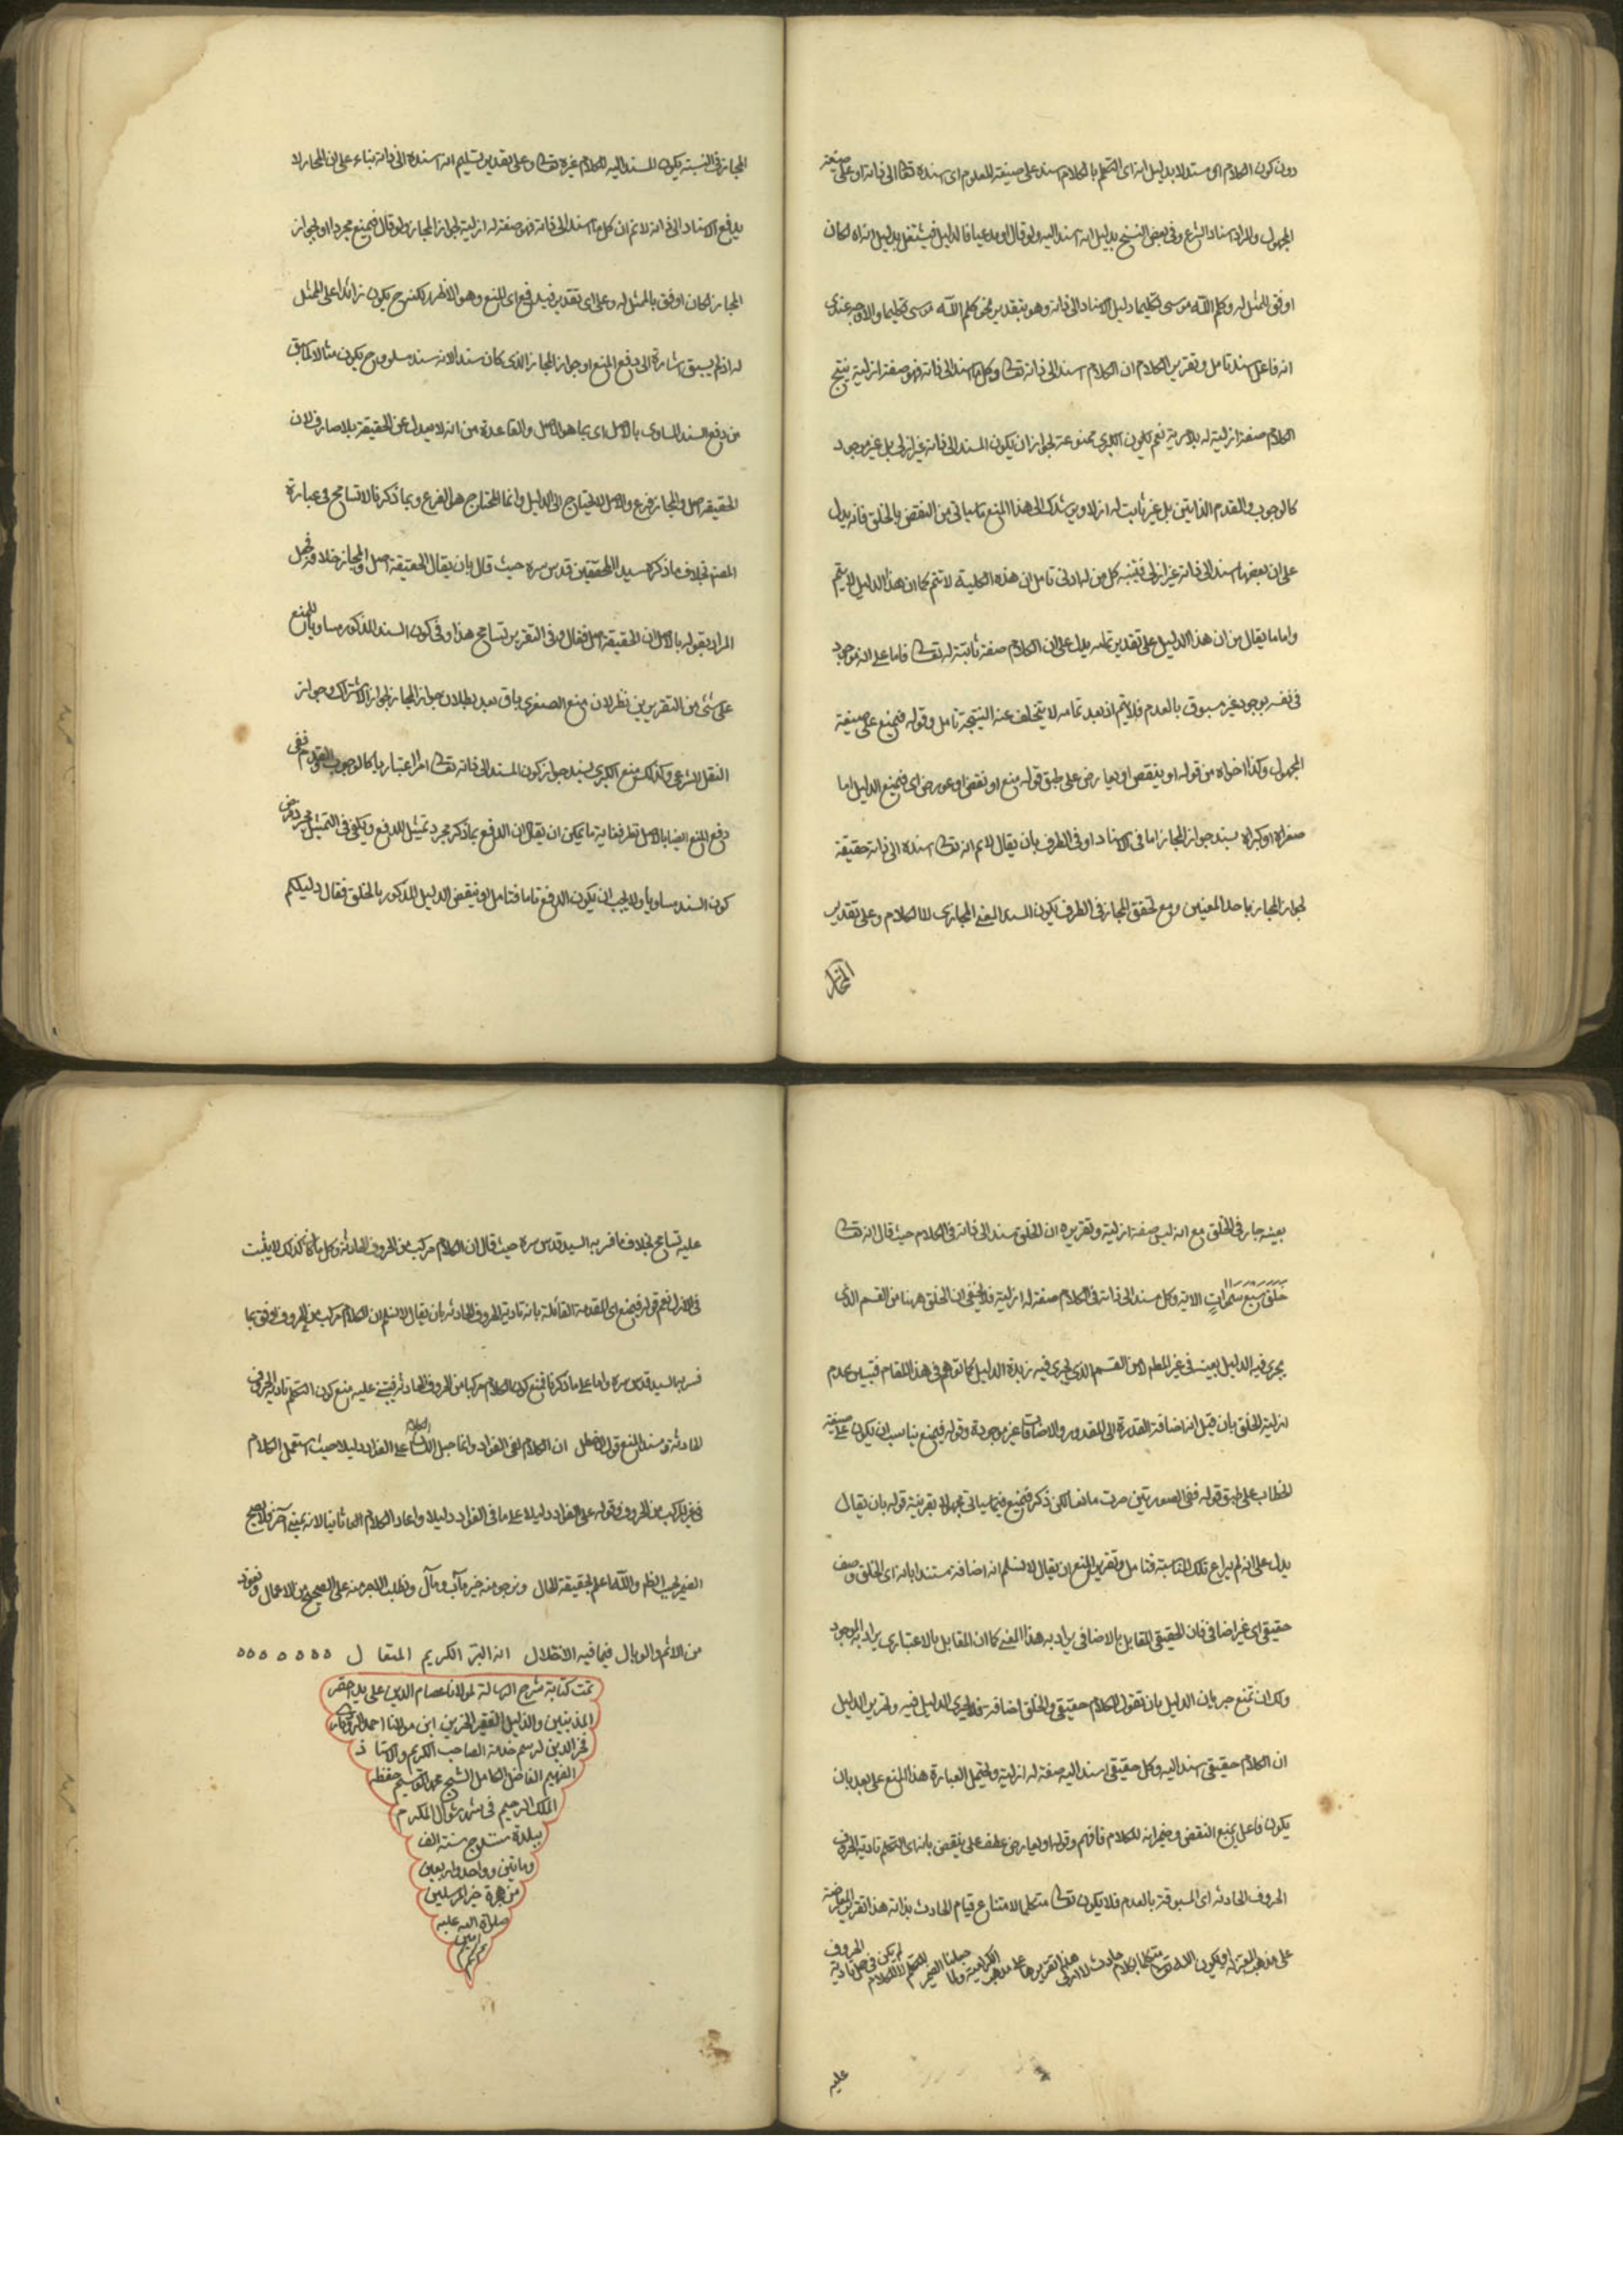 دون كون الكلام اى مستدلا بدليل انه اى التكلم بالكلام اسند على صيغة المعلوم اى اسنده تعالى الى ذاته او على صيغة
المجهول والمراد اسناد الشرع وفى بعض النسخ بدليل انه اسند اليه ولو قال او مدعيا فالدليل فيشتغل بدليل نراه لكان
اوفق للمثل له وكلم الله موسى تكليما دليل الاسناد الى ذاته وهو بتقدير نحو كلم الله موسى تكليما والاوجه عندى
انه فاعل اسند تامل وتقرير الكلام ان الكلام اسند الى ذاته تعالى وكل ما اسند الى ذاته فهو صفة ازلية ينتج
الكلام صفة ازلية له بلا مرية نعم يكون الكبرى ممنوعة لجواز ان يكون المسند الى ذاته غير ازلى بل غير موجود
كالوجوب والقدم الذاتيين بل غير ثابت له ازلا ويرشدك الى هذا المنع ما سياتى من النقض بالخلق فانه يدل
على ان بعض ما اسند الى ذاته غير ازلى فتنبه كل من له ادنى تامل ان هذه الكلية لا تتم كما ان هذا الدليل لا يتم
واما ما يقال من ان هذا الدليل على تقدير تمامه يدل على ان الكلام صفة ثابتة له تعالى فاما على انه موجود
فى نفسه بوجود غير مسبوق بالعدم فلا يتم اذ بعد تمامه لا يتخلف عنه النتيجة تامل وقوله فيمنع على صيغة
المجهول وكذا اخواه من قوله او ينقض او يعارض على طبق قوله منع او نقض او عورض اى فيمنع الدليل اما
صغراه او كبراه بسند جواز المجاز اما فى الاسناد او فى الطرف بان يقال لا نم انه تعالى اسنده الى ذاته حقيقة
لجواز المجاز باحد المعنيين ومع تحقق المجاز فى الطرف يكون المسند المعنى المجازى لا الكلام وعلى تقدير
المجاز
المجاز فى النسبة يكون المسند اليه للكلام غيره تعالى وعلى تقدير تسليم انه اسنده الى ذاته بناء على ان المجاز لا
يدفع الاسناد الى ذاته لا نم ان كل ما اسند الى ذاته فهو صفة له ازلية لجواز المجاز ولو قال فيمنع مجردا او لجواز
المجاز لكان اوفق بالممثل له وعلى اى تقدير فيدفع اى المنع وهو الاظهر لكنه ح يكون زائدا على الممثل
له اذ لم يسبق اشارة الى دفع المنع او جواز المجاز الذى كان سندا لانه سند مساو وح يكون مثالا لما سبق
من دفع السند المساوى بالاصل اى بما هو الاصل والقاعدة من انه لا يعدل عن الحقيقة بلا صارف لان
الحقيقة اصل والمجاز فرع والاصل لا يحتاج الى الدليل وانما المحتاج هو الفرع وبما ذكرنا لا تسامح فى عبارة
المصنف بخلاف ما ذكره سيد المحققين قدس سره حيث قال بان يقال الحقيقة اصل والمجاز خلافه فجعل
المراد بقوله بالاصل ان الحقيقة اصل فقال وفى التقرير تسامح هذا وفى كون السند المذكور مساويا للمنع
على شئ من التقريرين نظر لان منع الصغرى باق بعد بطلان جواز المجاز لجواز الاشتراك وجواز
النقل الشرعى وكذلك منع الكبرى بسند جواز كون المسند الى ذاته تعالى امرا اعتباريا كالوجوب والقدم ففى
دفع المنع ايضا بالاصل نظر فغاية ما يمكن ان يقال ان الدفع بما ذكر مجرد تمثيل للدفع ويكفى فى التمثيل مجرد فرض
كون السند مساويا ولا يجب ان يكون الدفع تاما فتامل او ينقض الدليل المذكور بالخلق فقال دليلكم
بعينه جار فى الخلق مع انه ليس صفة ازلية وتقريره ان الخلق مسند الى ذاته فى الكلام حيث قال انه تعالى
خلق سبع سموات الاية وكل مسند الى ذاته فى الكلام صفة له ازلية فلا يخفى ان الخلق ههنا من القسم الذى
يجرى فيه الدليل بعينه فى غير المطم لا من القسم الذى يجرى فيه زبدة الدليل كما توهم فى هذا المقام فتبين عدم
ازلية الخلق بان قيل انه اضافة القدرة الى المقدور والاضافات غير موجودة وقوله فيمنع يناسب ان يكون على صيغة
الخطاب على طبق قوله ففى الصورتين صرت مانعا لكن ذكر فيمنع فيما سياتى مجهولا بقرينة قوله بان يقال
يدل على انه لم يراع تلك المناسبة فتامل وتقرير المنع ان يقال لا نسلم انه اضافة مستندا بانه اى الخلق وصف
حقيقى اى غير اضافى فان الحقيقى المقابل بالاضافى يراد به هذا المعنى كما ان المقابل بالاعتبارى يراد به الموجود
ولك ان تمنع جريان الدليل بان تقول الكلام حقيقى والخلق اضافة فلا يجرى الدليل فيه وتحرير الدليل
ان الكلام حقيقى اسند اليه وكل حقيقى اسند اليه صفة له ازلية وتحتمل العبارة هذا المنع على بعد بان
يكون فاعل يمنع النقض وضمير انه للكلام فافهم وقوله او يعارض عطف على ينقض بانه اى التكلم تادية الحروف
الحروف الحادثة اى المسبوقة بالعدم فلا يكون تعالى متكلما لامتناع قيام الحادث بذاته هذا تقرير المعارضة
على مذهب المعتزلة او يكون الله تعالى متكلما بكلام حادث لا ازلى هذا تقريرها على مذهب الكرامية ولما جعلنا الضمير للتكلم لا للكلام لم يكن فى حمل تادية الحروف
عليه
عليه تسامح بخلاف ما فسر به السيد قدس سره حيث قال ان الكلام مركب من الحروف الحادثة وكل ما كان كذلك لا يثبت
فى الازل نعم قوله فيمنع اى المقدمة القائلة بانه تادية الحروف الحادثة بان يقال لا نسلم ان الكلام مركب من الحروف اوفق بما
فسر به السيد قدس سره واما على ما ذكرنا فمنع كون الكلام مركبا من الحروف الحادثة يبتنى عليه منع كون التكلم تادية الحروف
الحادثة وسند المنع قول الاخطل ان الكلام لفى الفؤاد وانما جعل الكلام على الفؤاد دليلا حيث استعمل الكلام
فى غير المركب من الحروف وقوله على الفؤاد دليلا على ما فى الفؤاد دليلا واعاد الكلام ثانيا لانه بمعنى آخر فلا يصح
الضمير بحسب الظاهر والله اعلم بحقيقة الحال ونرجو منه خير مآب ومآل ونطلب الاجر منه على الصحيح من الاعمال ونعوذ
من الاثم والوبال فيما فيه الاختلال انه البر الكريم المتعال
تمت كتابة شرح الرسالة لمولانا عصام الدين على يد احقر
المذنبين والذليل الفقير الحزين ابن مولانا احمد
فخر الدين لرسم خدمة الصاحب الكريم والاستاذ
الفهيم الفاضل الكامل الشيخ محمد القسيم حفظه
الملك الرحيم فى شهر شوال المكرم
ببلدة سنندج سنة الف
ومأتين وواحد واربعين
من هجرة خير المرسلين
صلوات الله عليه
آمين